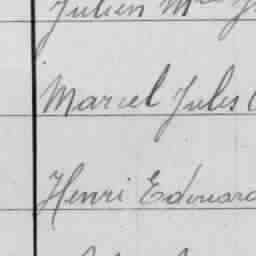 Julien M
Marcel Jules
Henri Edouard